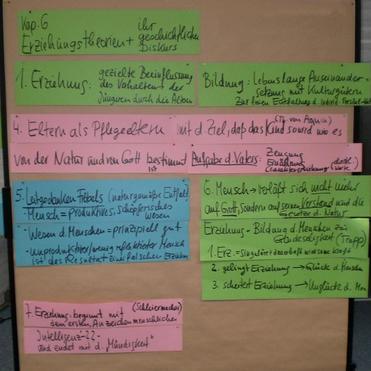 Kap. 6
Erziehungstheorien + ihr geschichtlicher Diskurs
1. Erziehung: gezielte Beeinflussung
des Verhaltens der
Jüngeren durch die Alten
Bildung: Lebenslange Auseinander-
setzung mit Kulturgütern
zur freien Entfaltung d.
4. Eltern als Pflegeeltern mit d. Ziel, daß das Kind so wird wie es
von der Natur und von Gott bestimmt ist
Aufgabe d. Vaters: Zeugung
Erziehung
5. Leitgedanken Fröbels
- Mensch = produktives, schöpferisches
Wesen
- Wesen d. Menschen = prinzipiell gut
- unproduktiver/wenig reflektierter Mensch
ist das Resultat falscher Erziehung
6. Mensch verläßt sich nicht mehr
auf Gott, sondern auf seinen Verstand und die
Gesetze d. Natur
Erziehung - Bildung d. Menschen zur
Glückseligkeit (Trapp)
1. Erz. =
2. gelingt Erziehung → Glück d. Menschen
3. scheitert Erziehung → Unglück d. Men
7. Erziehung beginnt mit (Schleiermacher)
dem ersten Anzeichen menschlicher
Intelligenz
und endet mit d. "Mündigkeit"